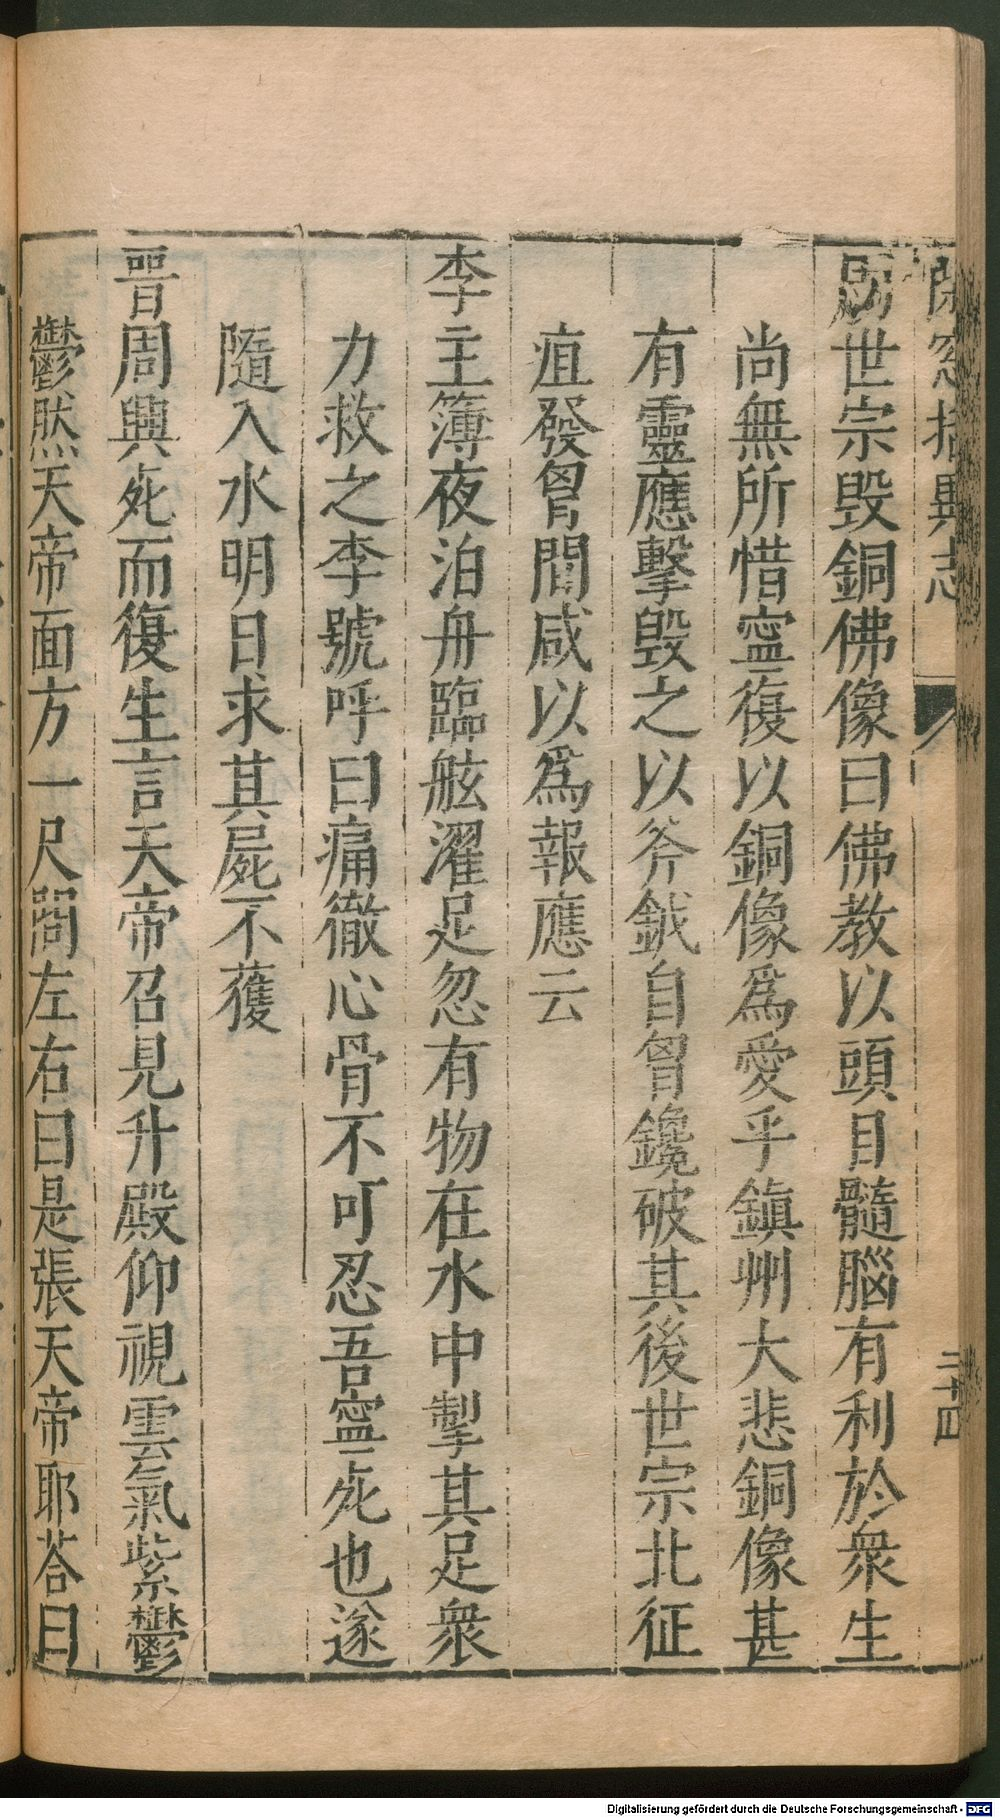 閒窓括異志
二十四
周世宗毀銅佛像曰佛教以頭目髓腦有利於衆生
尚無所惜寧復以銅像爲愛乎鎮州大悲銅像甚
有靈應擊毀之以斧鉞自胷鑱破其後世宗北征
疽發胷間咸以爲報應云
李主簿夜泊舟臨舷濯足忽有物在水中掣其足衆
力救之李號呼曰痛徹心骨不可忍吾寧死也遂
隨入水明日求其屍不獲
晉周興死而復生言天帝召見升殿仰視雲氣紫鬱
鬱然天帝面方一尺問左右曰是張天帝耶荅曰
Digitalisierung gefördert durch die Deutsche Forschungsgemeinschaft - DFG